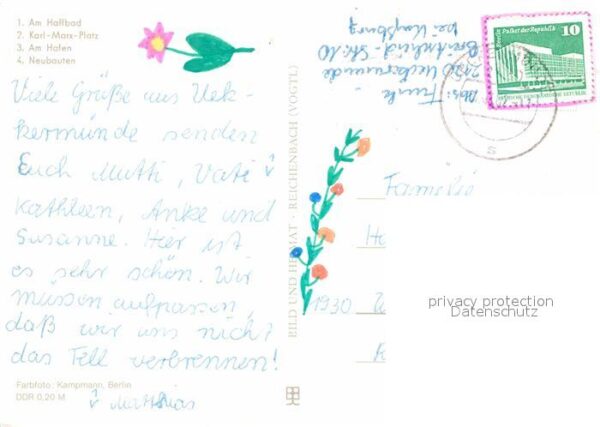 1. Am Haffbad
2. Karl-Marx-Platz
3. Am Hafen
4. Neubauten
Viele Grüße aus Uek-
kermünde senden
Euch Mutti, Vati
Kathleen, Anke und
Susanne. Hier ist
es sehr schön. Wir
müssen aufpassen,
daß wir uns nicht
das Fell verbrennen!
Matthias
Farbfoto: Kampmann, Berlin
DDR 0,20 M
BILD UND HEIMAT · REICHENBACH (VOGTL)
Abs.: Funke
2120 Ueckermünde
bei
10
Palast der Republik
Familie
1930
privacy protection
Datenschutz